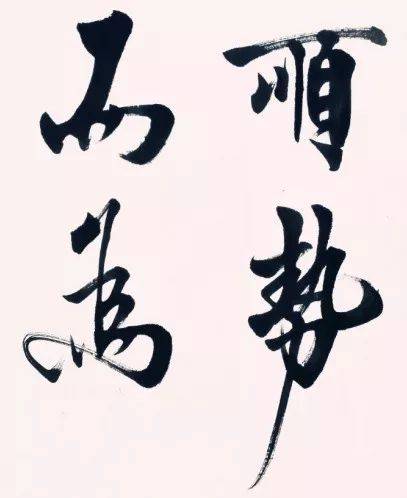 順勢
而為